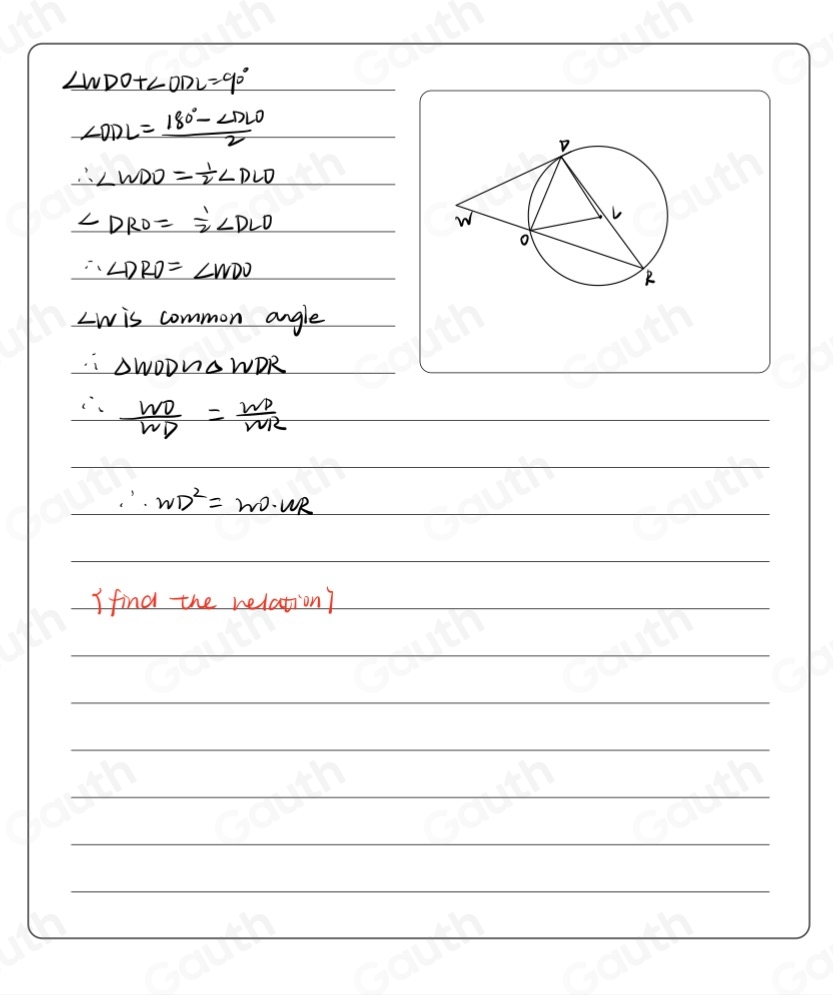 ∠WDO+∠ODL=90°
∠ODL=\frac{180°-∠DLO}{2}
∴∠WDO=\frac{1}{2}∠DLO
∠DRO=\frac{1}{2}∠DLO
∴∠DRO=∠WDO
∠W is common angle
∴△WOD∽△WDR
∴\frac{WO}{WD}=\frac{WD}{WR}
∴WD²=WO·WR
{find the relation}
D
W
L
O
R
Gauth